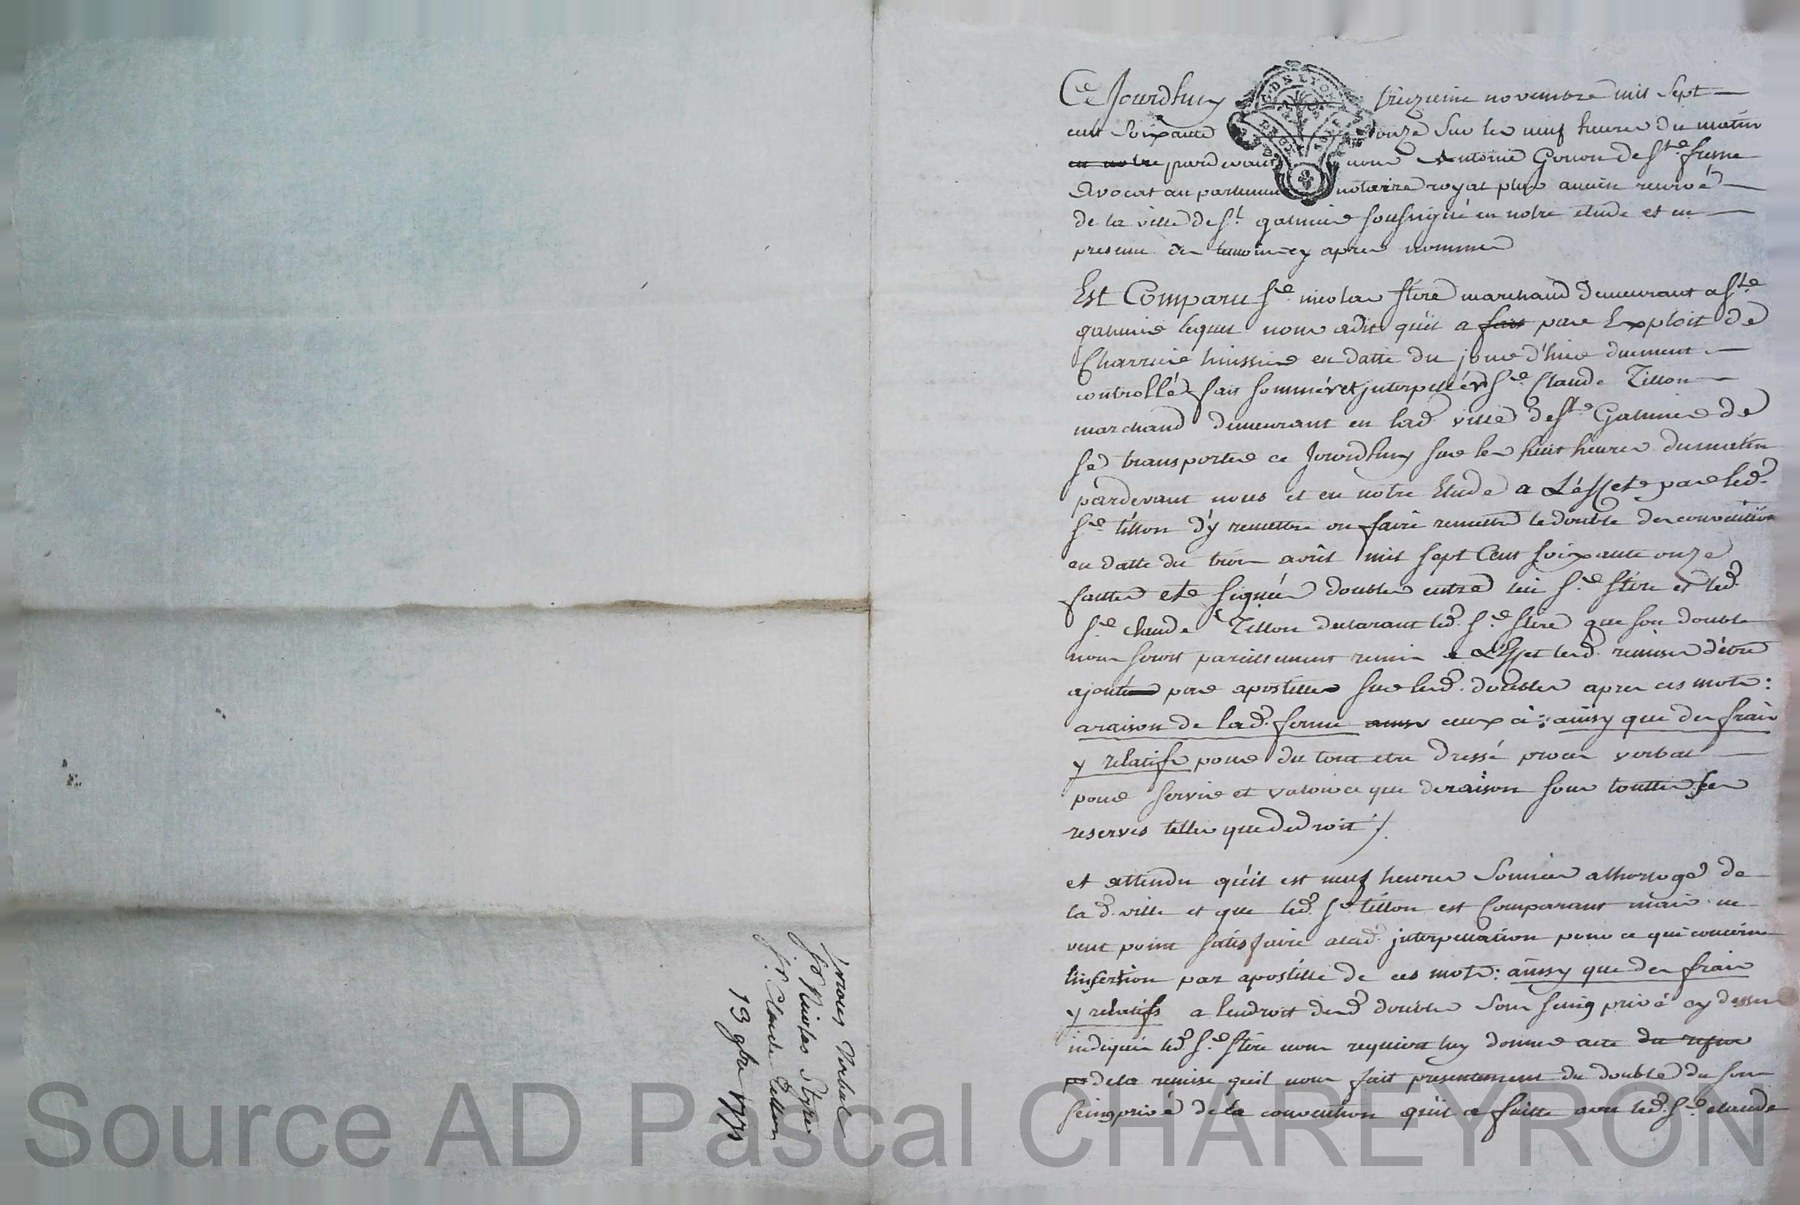 Ce Jourdhuy treizieme novembre mil sept
cent soixante onze sur les neuf heures du matin
en notre pardevant nous Antoine Gonon de St. fresne
Avocat au parlement notaire royal plus ancien reservé
de la ville de St. galmier soussigné en notre etude et en
presence des temoins cy apres nommés
Est Comparu Sr. nicolas Stire marchand demeurant a St.
galmier lequel nous a dit qu'il a fait par Exploit de
Charrier huissier en datte du jour d'hier duement
controllé fait sommér et jnterpellér Sr. Claude Tillon
marchand demeurant en lad. ville de St. Galmier de
se transporter ce Jourdhuy sur les huit heures du matin
pardevant nous et en notre Etude a L'effet par led.
Sr. tillon d'y remettre ou faire remettre le double des conventions
en datte du trois août mil sept Cent soixante onze
faittes et signées doubles entre lui Sr. Stire et led.
Sr. claude Tillon declarant led. Sr. Stire que son double
nous seroit pareillement remis a L'Effet lesd. remises d'être
ajouté par apostilles sur lesd. doubles apres ces mots:
araison de lad. ferme ceux ci: ainsy que des frais
y relatifs pour du tout etre dressé proces verbal
pour servir et valoir ce que de raison sous touttes ses
reserves telles que de droit /.
et attendu qu'il est neuf heures sonnées a lhorloge de
lad. ville et que led. Sr. tillon est Comparant mais ne
veut point satisfaire alad. jnterpellation pour ce qui concerne
l'insertion par apostille de ces mots: ainsy que des frais
y relatifs a lendroit dud. double sous seing privé cy dessus
indiqué led. Sr. Stire nous requiert luy donner acte du refus
de la remise qu'il nous fait presentement du double du sous
seing privé de la convention qu'il a faitte avec led. Sr. claude
proces Verbal
Sr. Nicolas Styre
Sr. Claude Tillon
13 9bre 1771
Source AD Pascal CHAREYRON